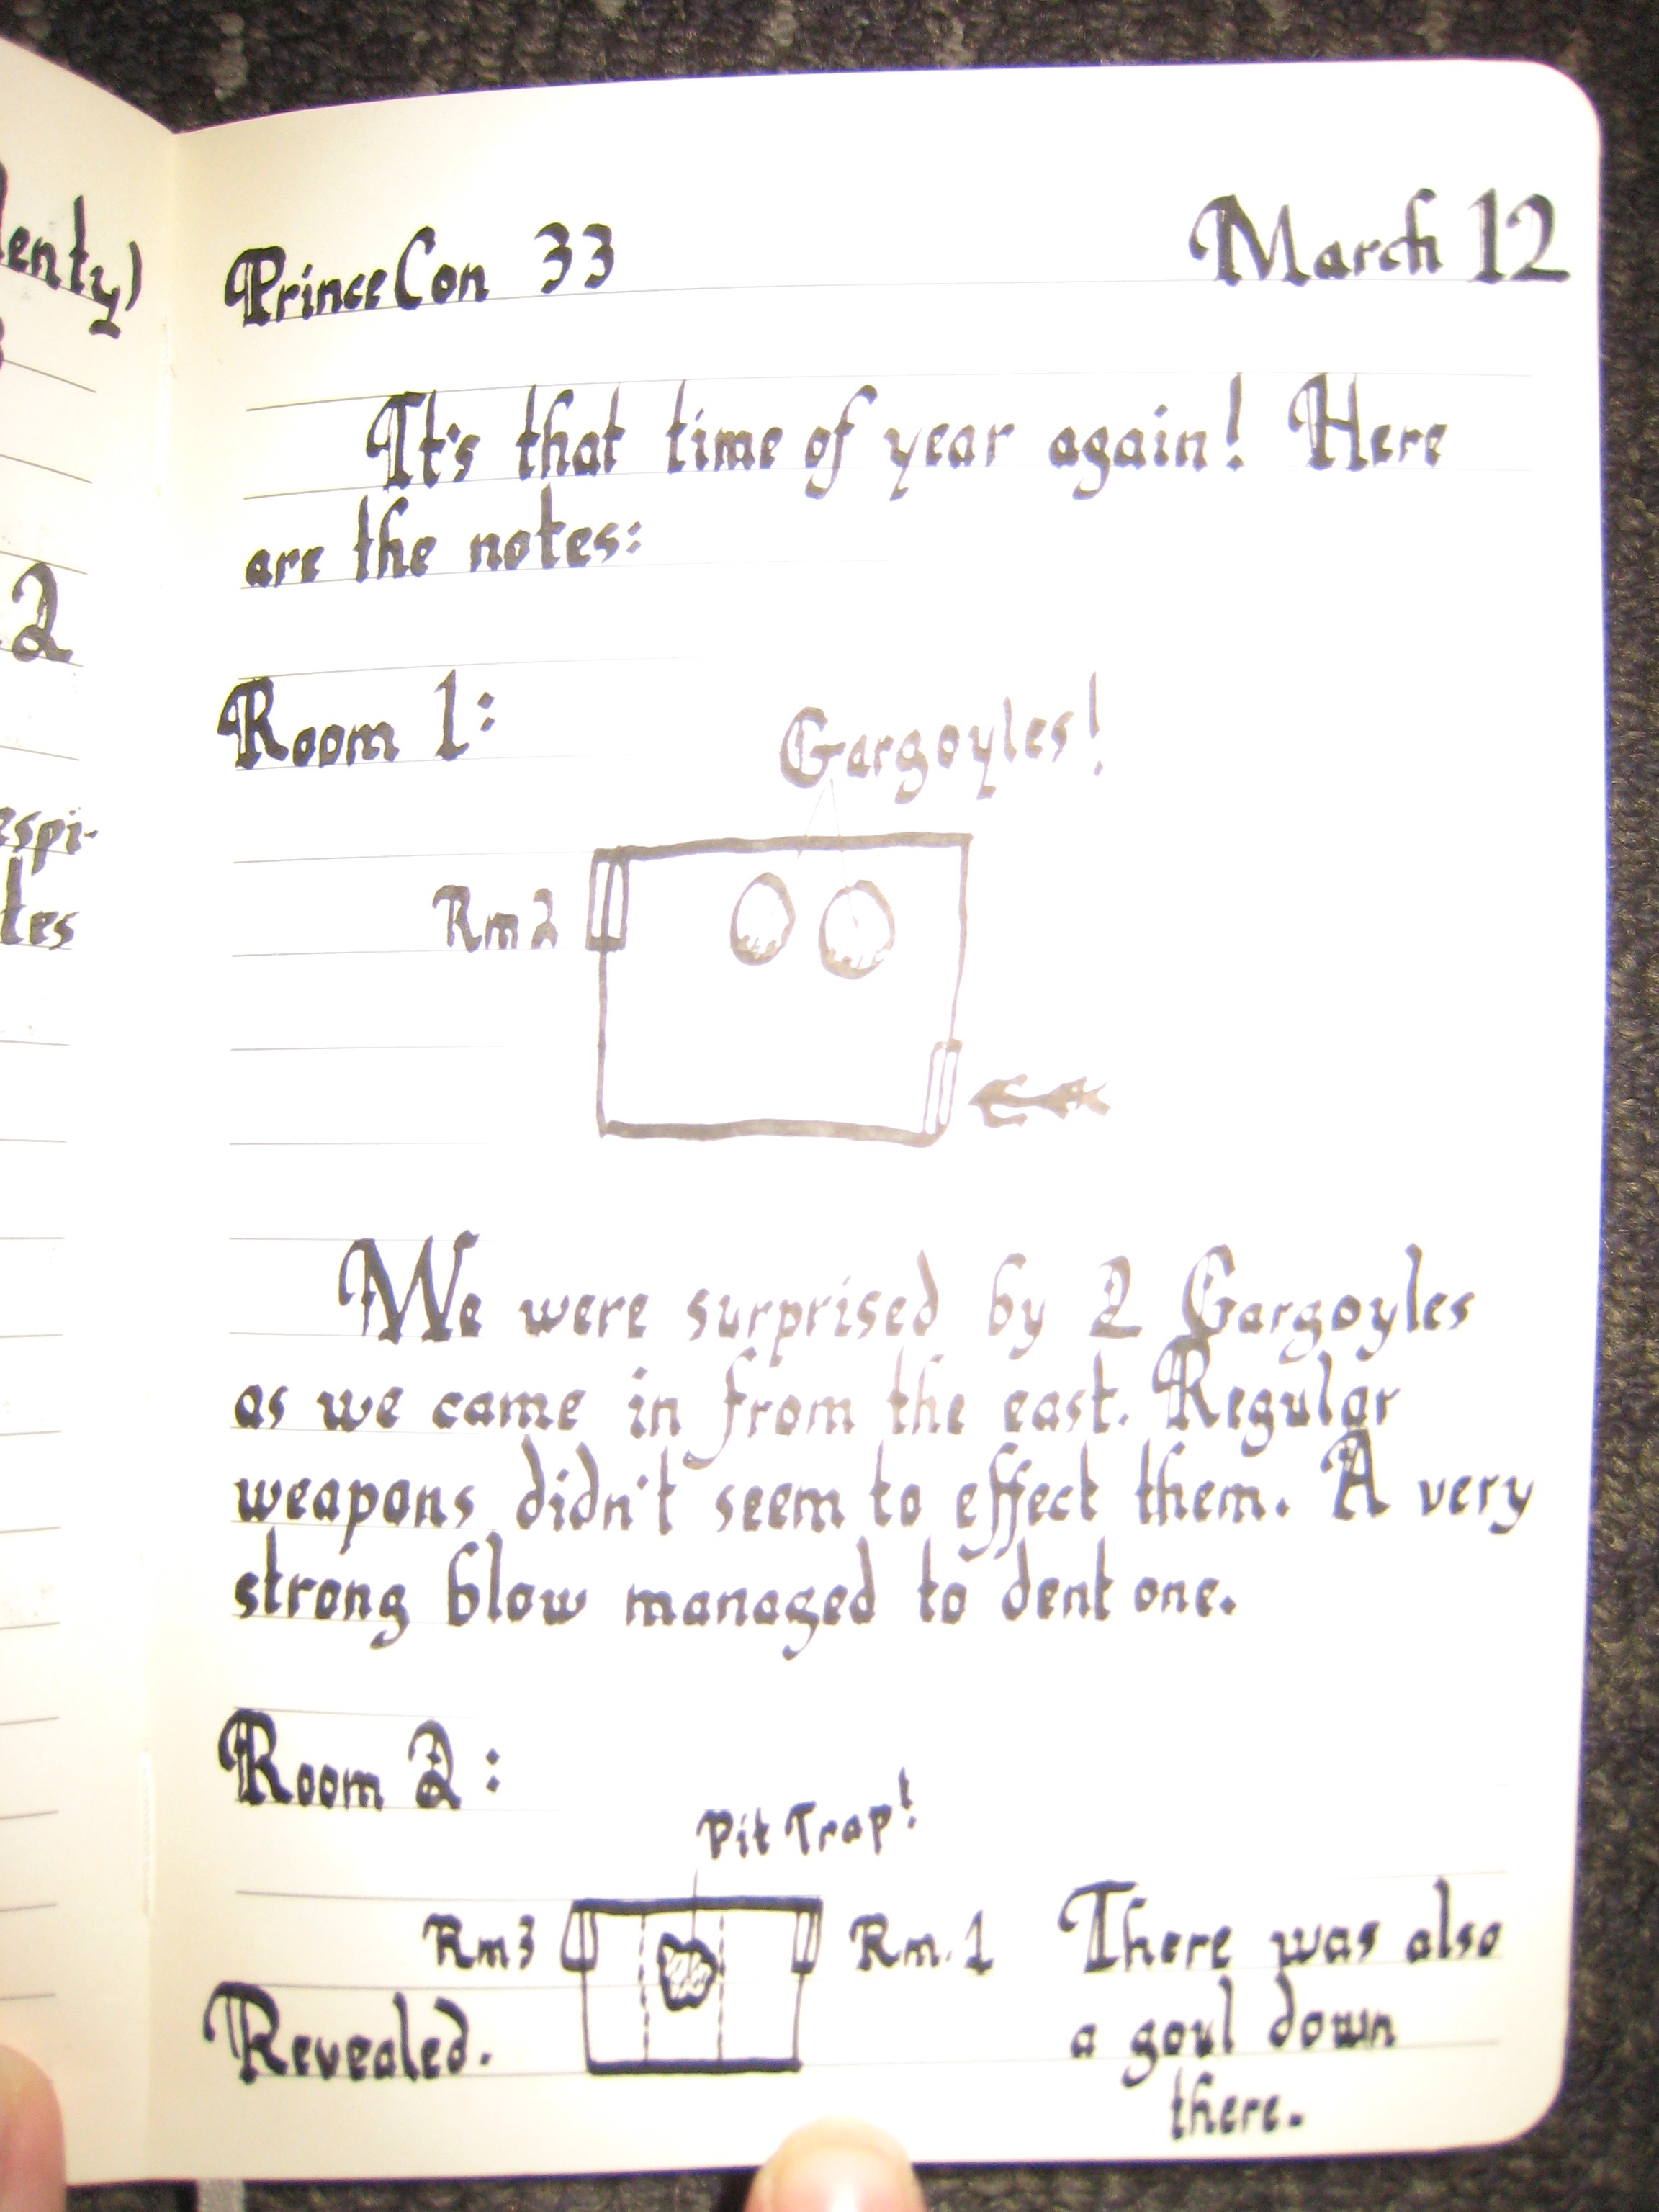 enty)
2
espi-
tes
PrinceCon 33 March 12
It's that time of year again! Here
are the notes:
Room 1:
Gargoyles!
Rm 2
We were surprised by 2 Gargoyles
as we came in from the east. Regular
weapons didn't seem to effect them. A very
strong blow managed to dent one.
Room 2:
Pit Trap!
Rm 3 Rm. 1 There was also
Revealed. a goul down
there.